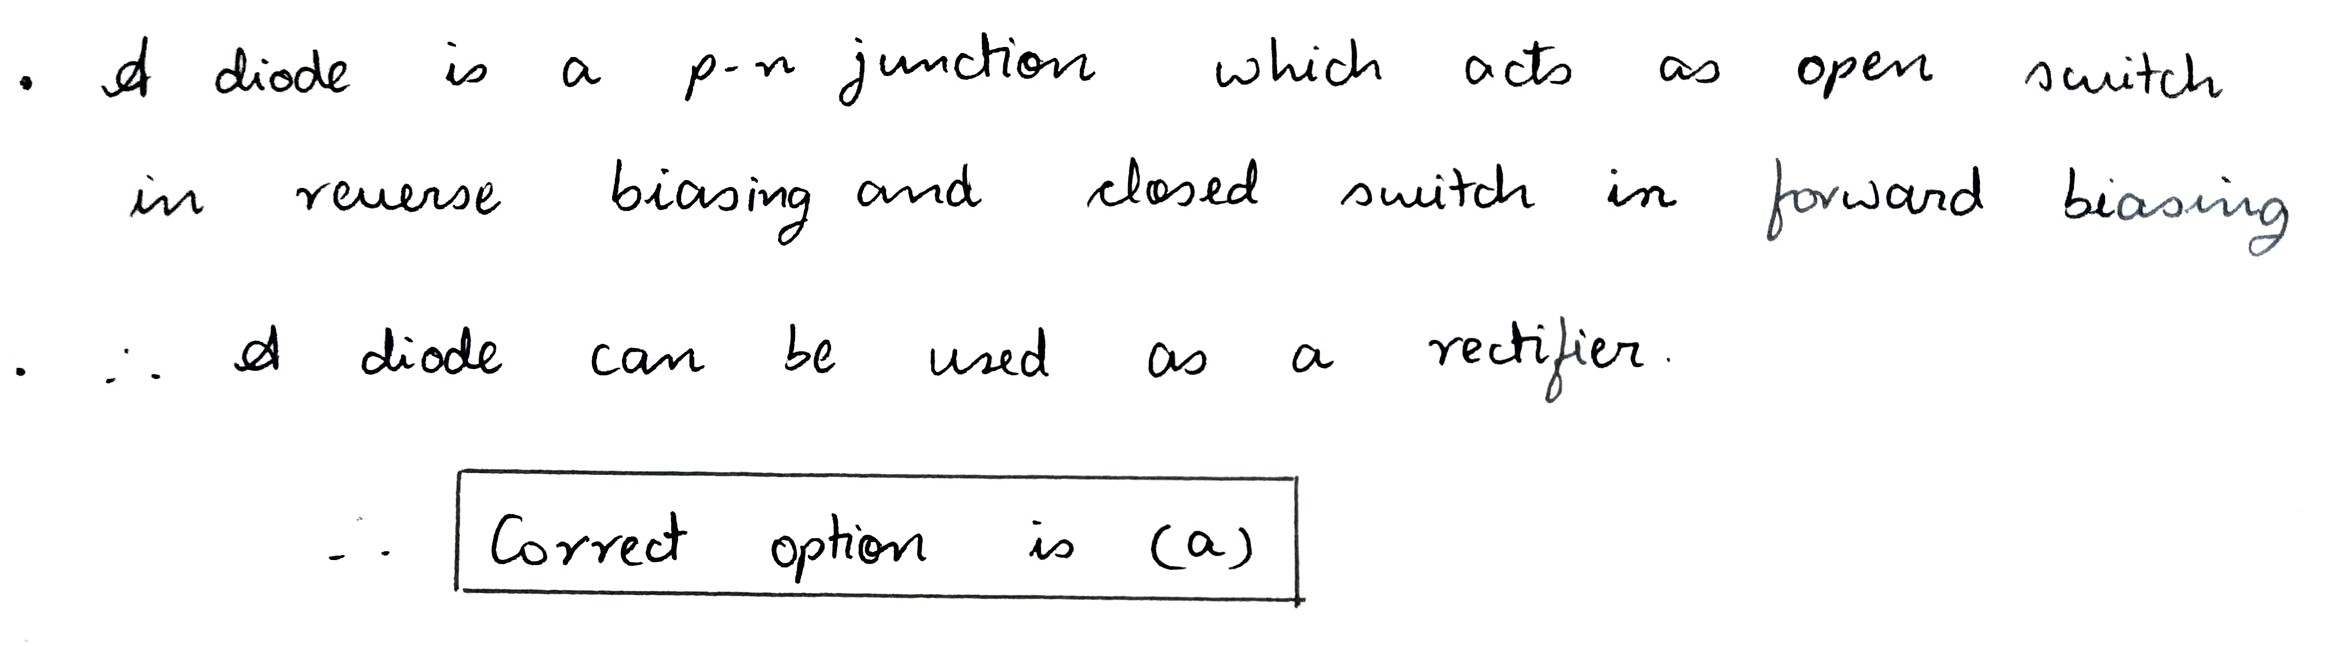 . A diode is a p-n junction which acts as open switch
in reverse biasing and closed switch in forward biasing
. ∴ A diode can be used as a rectifier.
∴ Correct option is (a)